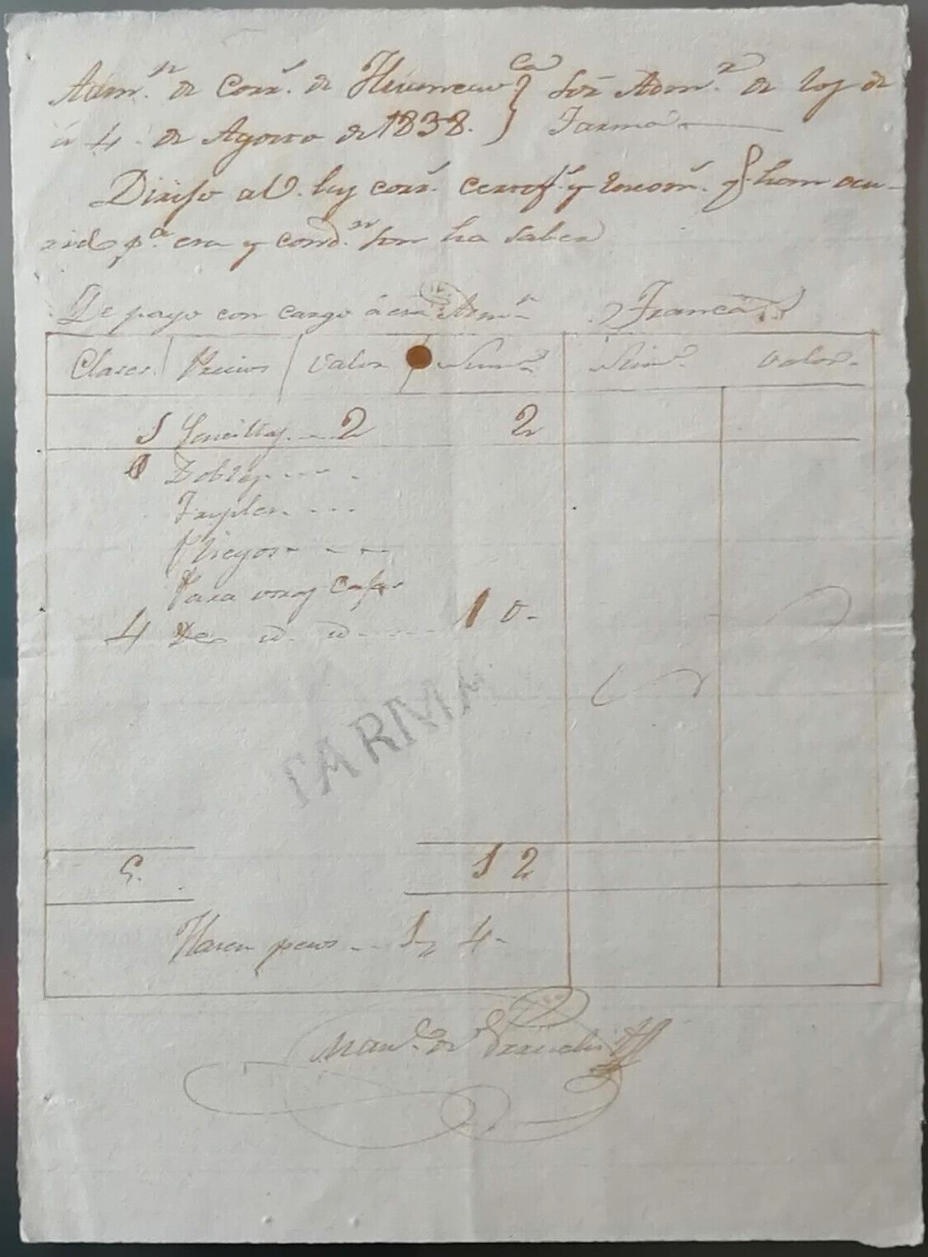 Adm.ⁿ de Corr.ˢ de Huancav.ᶜᵃ } Sōr Adm.ʳ de los de
á 4 de Agosto de 1838. } Tarma
Dirijo a V. las corr.ˢ certif.ˢ y encom.ˢ q.ᵉ han ocu-
rrido p.ᵃ esa y cond.ⁿ son ha saber
De pago con cargo á esa Adm.ⁿ Franca
Clases Precios Valor Num.ᵒ Num.ᵒ Valor
1 Sencillas 2 2
Dobles
Triples
Pliegos
Para otras Cajas
4 De id. id. 10
TARMA
5. 12
Hacen pesos 1, 4
Man.ˡ de